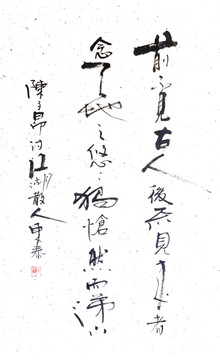 前不見古人後不見来者
念天地之悠々獨愴然而涕下
陳子昂诗江湖散人申泰